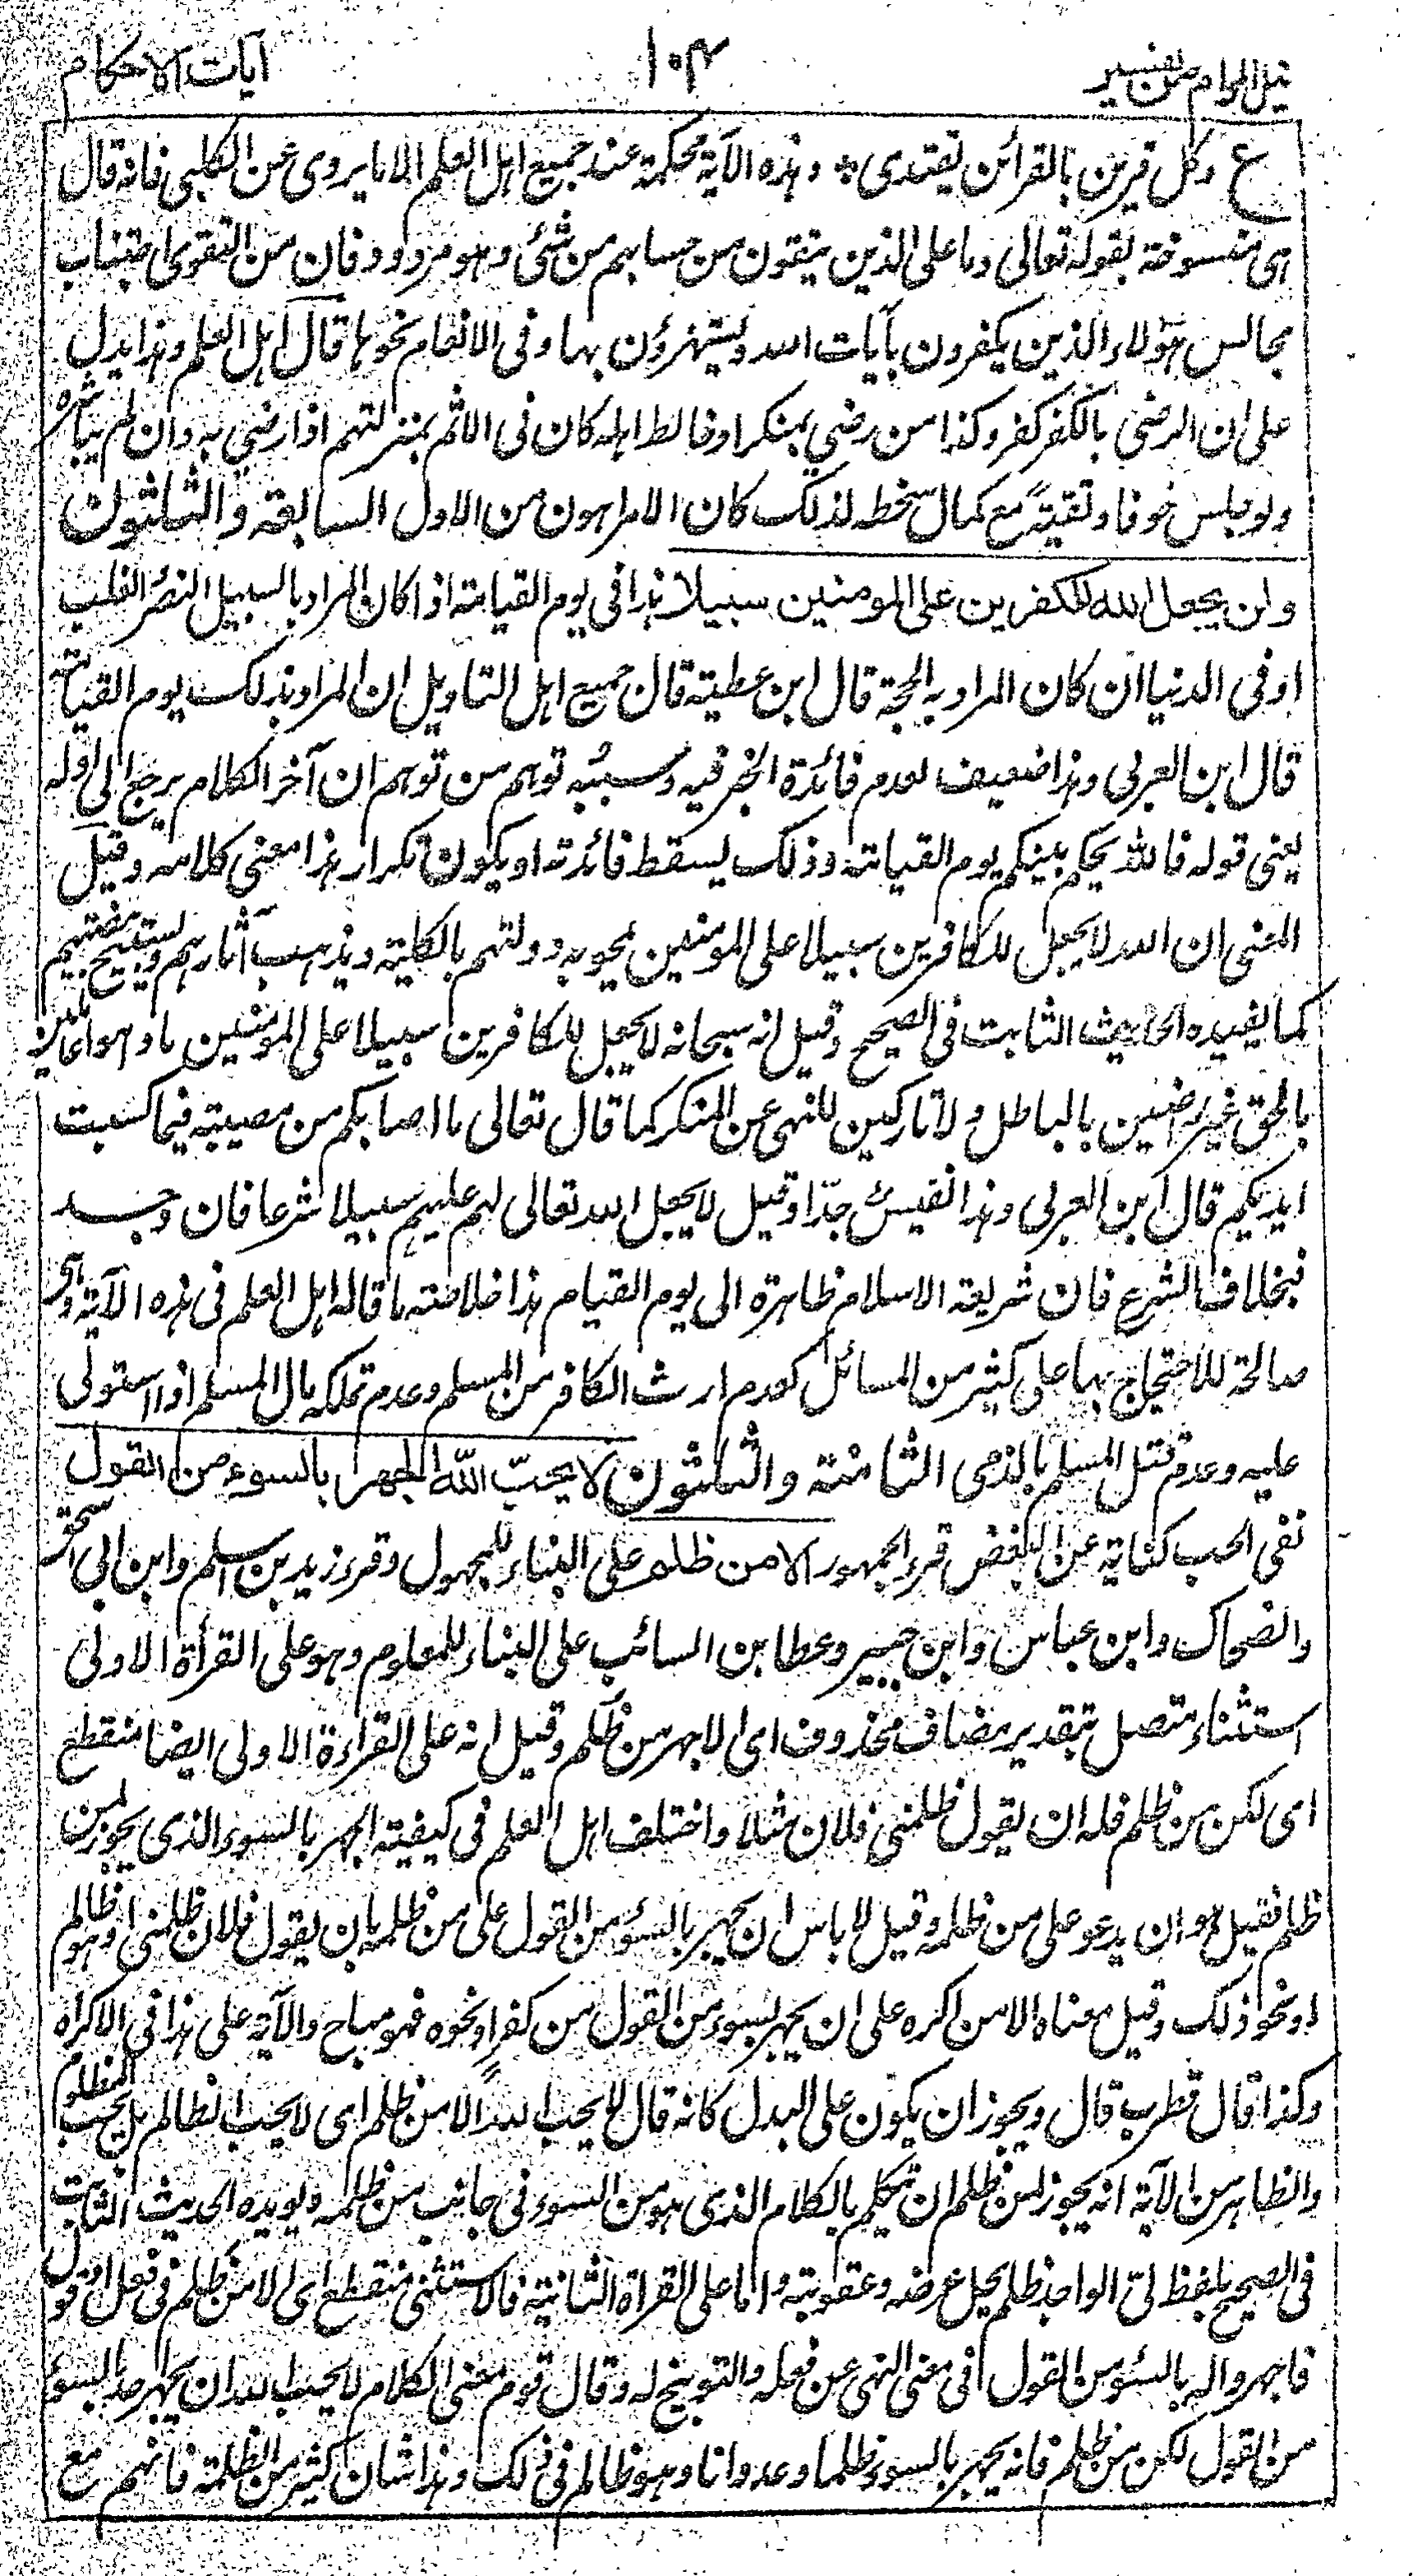 نيل المرام من تفسير
١٠٤
آيات الاحكام
ع وكل قرين بالقرائن يقتدى ÷ وهذه الآية محكمة عند جميع اهل العلم الا ما يروى عن الكلبى فانه قال
هى منسوخة بقوله تعالى وما على الذين يتقون من حسابهم من شئ وهو مردود فان من التقوى اجتناب
مجالس هؤلاء الذين يكفرون بآيات الله ويستهزؤن بها وفى الانعام نحوها قال اهل العلم وهذا يدل
على ان الرضى بالكفر كفر وكذا من رضى بمنكر او خالط اهله كان فى الاثم بمنزلتهم اذا رضى به وان لم يباشره
ولو جلس خوفا وتقيةً مع كمال سخطه لذلك كان الامر اهون من الاول السابعة والثلثون
ولن يجعل الله للكفرين على المومنين سبيلا هذا فى يوم القيامة اذا كان المراد بالسبيل النصر والغلب
او فى الدنيا ان كان المراد به الحجة قال ابن عطية قال جميع اهل التاويل ان المراد بذلك يوم القيامة
قال ابن العربى وهذا ضعيف لعدم فائدة الخبر فيه وسببه توهم من توهم ان آخر الكلام يرجع الى اوله
يعنى قوله فالله يحكم بينكم يوم القيامة وذلك يسقط فائدته او يكون تكرار هذا معنى كلامه وقيل
المعنى ان الله لا يجعل للكافرين سبيلا على المومنين يمحو به دولتهم بالكلية ويذهب آثارهم ويستبيح بيضتهم
كما يفيده الحديث الثابت فى الصحيح وقيل انه سبحانه لا يجعل للكافرين سبيلا على المومنين ما داموا عاملين
بالحق غير راضين بالباطل ولا تاركين للنهى عن المنكر كما قال تعالى ما اصابكم من مصيبة فيما كسبت
ايديكم قال ابن العربى وهذا نفيس جدّا وقيل لا يجعل الله تعالى لهم عليهم سبيلا شرعا فان وجد
فبخلاف الشرع فان شريعة الاسلام ظاهرة الى يوم القيام هذا خلاصة ما قاله اهل العلم فى هذه الآية وهى
صالحة للاحتجاج بها على كثير من المسائل كعدم ارث الكافر من المسلم وعدم تملكه مال المسلم اذا استولى
عليه وعدم قتل المسلم بالذمى الثامنة والثلثون لا يحبّ الله الجهر بالسوء من القول
نفى الحب كناية عن البغض قرء الجمهور الا من ظلم على البناء للمجهول وقرء زيد بن اسلم وابن ابى اسحق
والضحاك وابن عباس وابن جبير وعطا بن السائب على البناء للمعلوم وهو على القرأة الاولى
استثناء متصل بتقدير مضاف محذوف اى الا جهر من ظلم وقيل انه على القراءة الاولى ايضا منقطع
اى لكن من ظلم فله ان يقول ظلمنى فلان مثلا واختلف اهل العلم فى كيفية الجهر بالسوء الذى يجوز لمن
ظلم فقيل هو ان يدعو على من ظلمه وقيل لا باس ان يجهر بالسؤ من القول على من ظلمه بان يقول فلان ظلمنى او هو ظالم
او نحو ذلك وقيل معناه الا من اكره على ان يجهر بسوء من القول من كفر او نحوه فهو مباح والآية على هذا فى الاكراه
وكذا قال قطرب قال ويجوز ان يكون على البدل كانه قال لا يحب الله الا من ظلم اى لا يحب الظالم بل يحب المظلوم
والظاهر من الآية انه يجوز لمن ظلم ان يتكلم بالكلام الذى هو من السوء فى جانب من ظلمه ويويده الحديث الثابت
فى الصحيح بلفظ لىّ الواجد ظلم يحل عرضه وعقوبته واما على القرأة الثانية فالاستثنى منقطع اى الا من ظلم فى فعل او قول
فاجهروا له بالسئو من القول فى معنى النهى عن فعله والتوبيخ له وقال قوم معنى الكلام لا يحب الله ان يجهر احد بالسئو
من القول لكن من ظلم فانه يجهر بالسوء ظلما وعدوانا وهو ظالم فى ذلك وهذا شان كثير من الظلمة فانهم مع